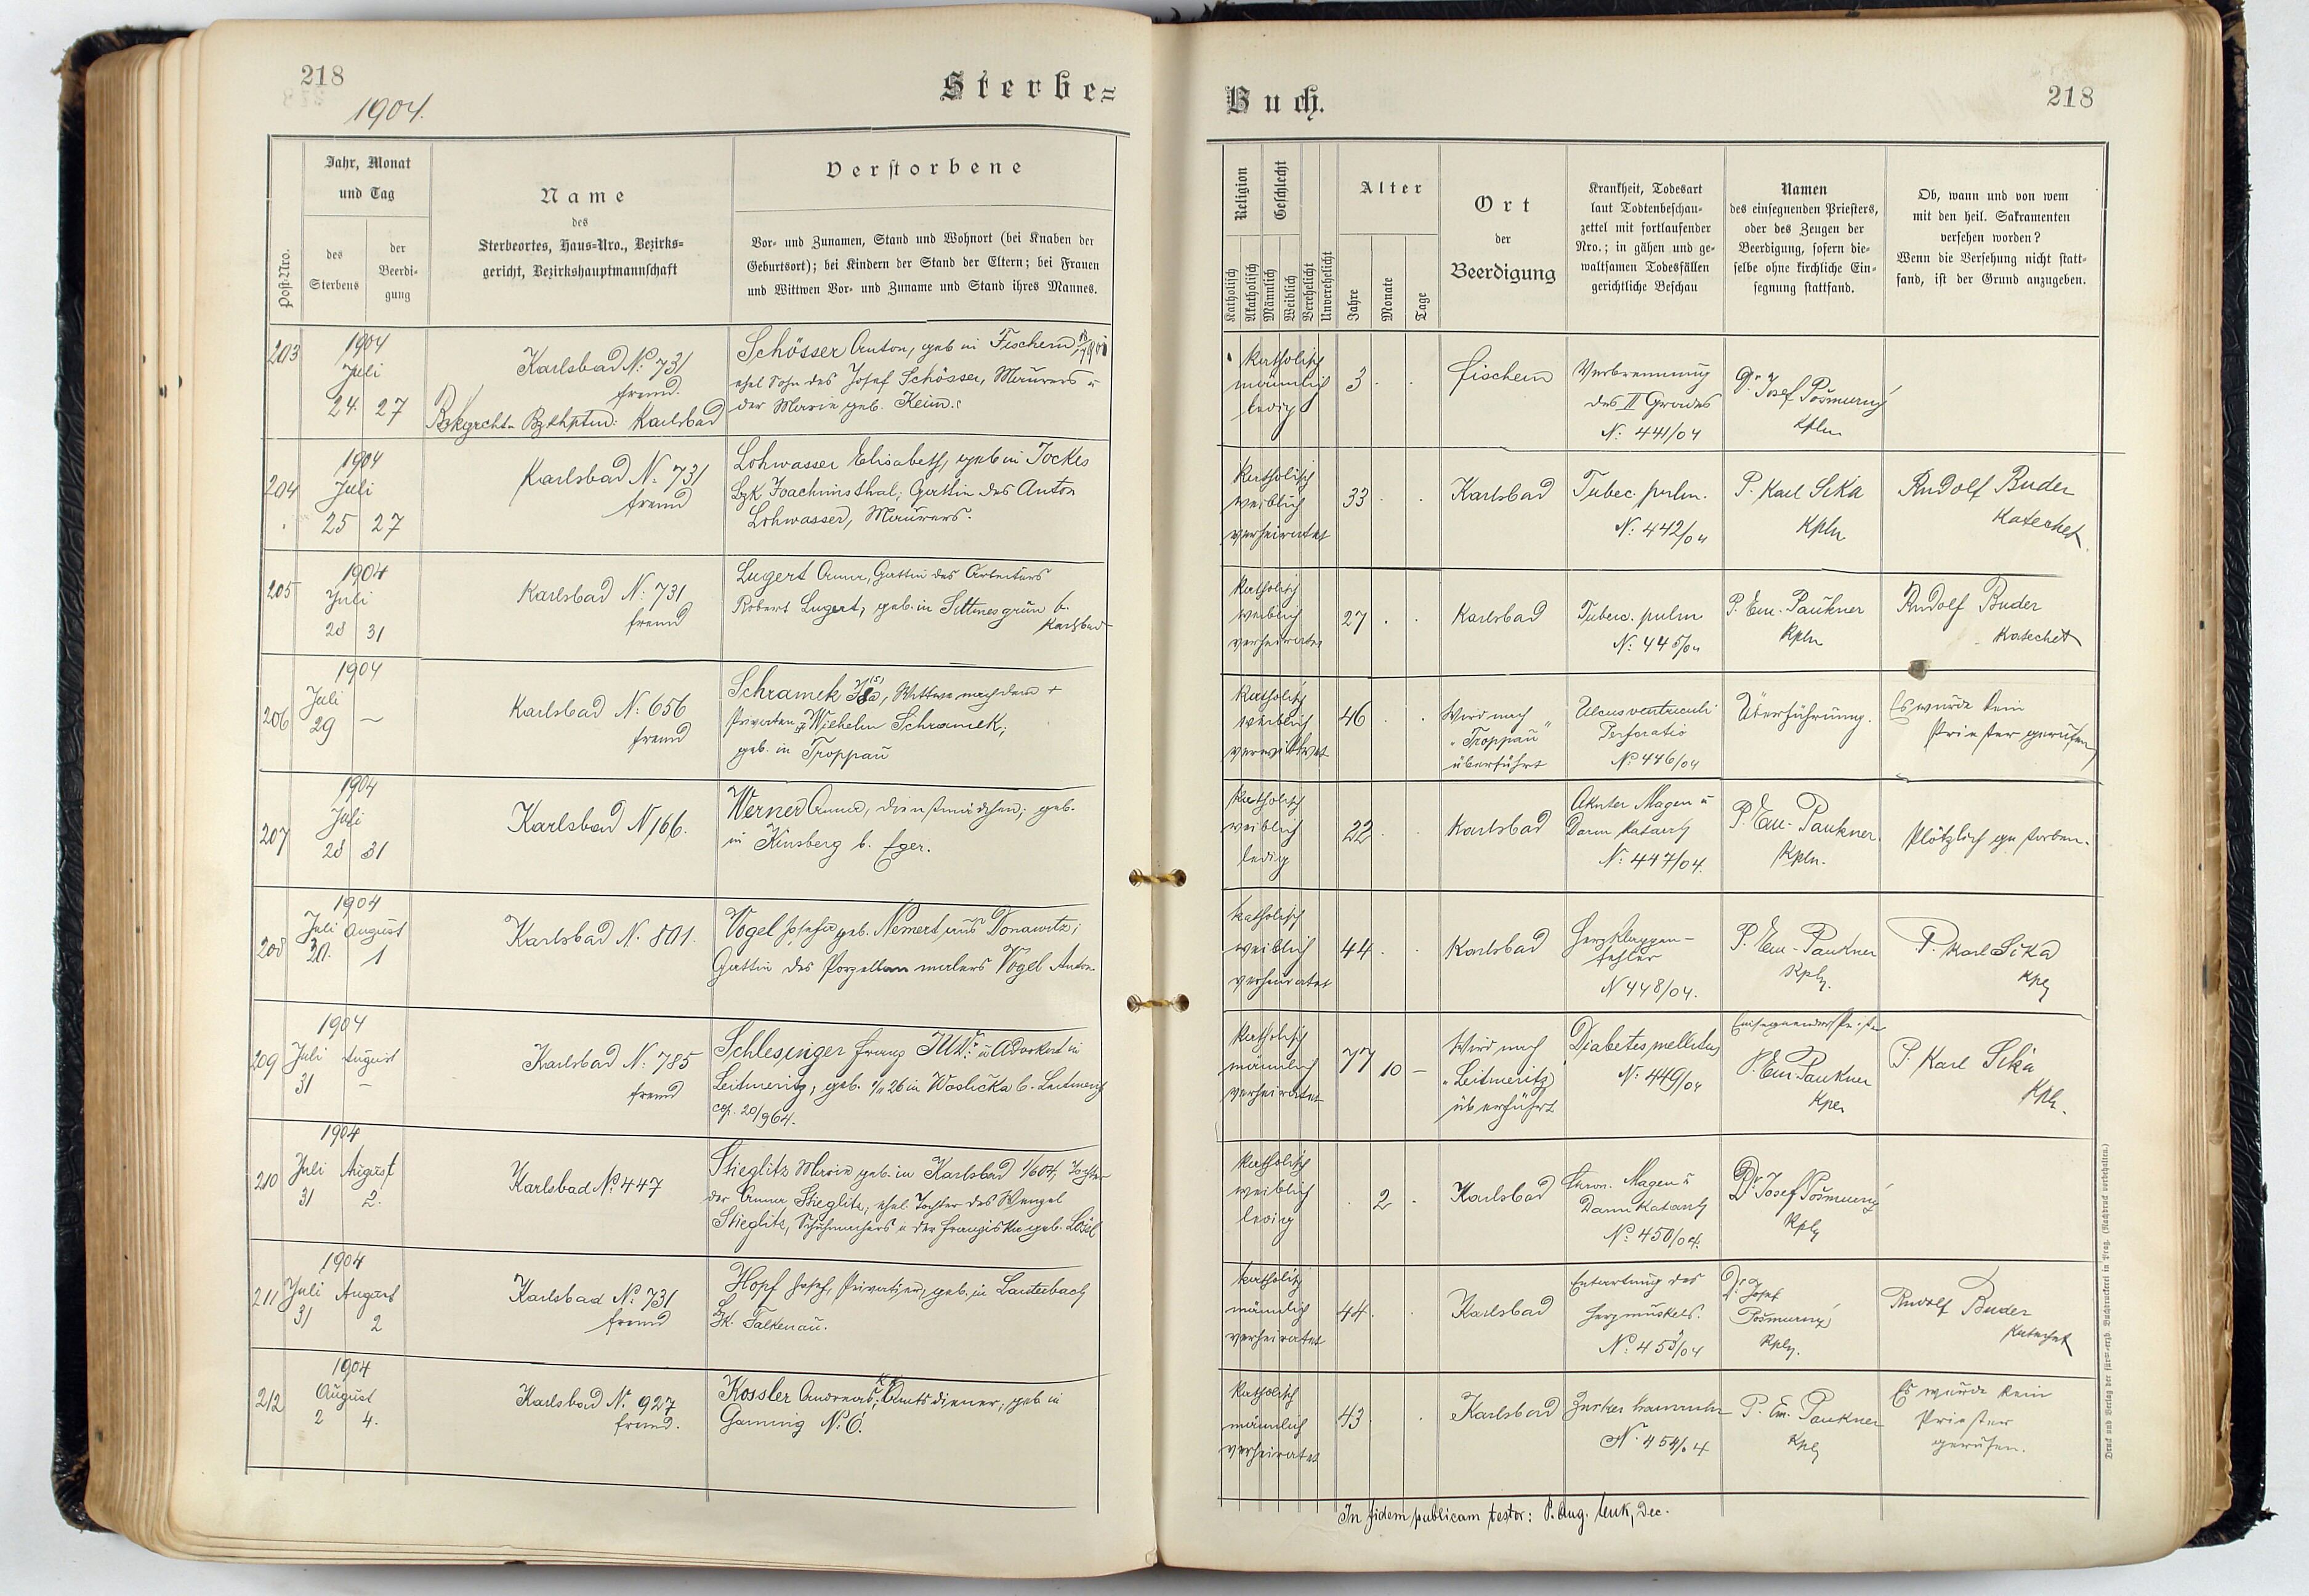 218
1904.
Sterbe=
Post-Nro.
Jahr, Monat
und Tag
des
Sterbens
der
Beerdi=
gung
Name
des
Sterbeortes, Haus-Nro., Bezirks=
gericht, Bezirkshauptmannschaft
Verstorbene
Vor= und Zunamen, Stand und Wohnort (bei Knaben der
Geburtsort); bei Kindern der Stand der Eltern; bei Frauen
und Wittwen Vor= und Zuname und Stand ihres Mannes.
203
1904
Juli
24. 27
Karlsbad No: 731
fremd.
Karlsbad
Schösser Anton, geb in Fischern
ehel Sohn des Josef Schösser, Maurers u
der Marie geb. Keim.
204
1904
Juli
25 27
Karlsbad N: 731
fremd
Lohwasser Elisabeth, geb in Jockes
Bzk Joachimsthal; Gattin des Anton
Lohwasser, Maurers.
205
1904
Juli
28 31
Karlsbad N: 731
fremd
Lugert Anna, Gattin des Arbeiters
Robert Lugert, geb. in Sittmesgrün b.
Karlsbad
206
1904
Juli
29 —
Karlsbad N: 656
fremd
Schramek Ida, Wittwe nach dem +
Privaten Wilhelm Schramek;
geb. in Troppau
207
1904
Juli
28 31
Karlsbad N 166.
Werner Anna, Dienstmädchen; geb.
in Kinsberg b. Eger.
208
1904
Juli August
30. 1
Karlsbad N. 801.
Vogel Josefa geb. Nemert aus Donawitz;
Gattin des Porzellanmalers Vogel Anton
209
1904
Juli August
31 —
Karlsbad N: 785
fremd
Schlesinger Franz JUDr: u Advokat in
Leitmeritz, geb. 1/11 26 in b. Leitmeritz
cop. 20/9 64.
210
1904
Juli August
31 2.
Karlsbad No 447
Stieglitz Marie geb. in Karlsbad 1/6 04, Tochter
der Anna Stieglitz, ehel Tochter des Wenzel
Stieglitz, Schuhmachers u der Franziska geb. Lösl
211
1904
Juli August
31 2
Karlsbad No: 731
fremd
Hopf Josef, Privatier, geb. in Lauterbach
Bzk. Falkenau.
212
1904
August
2 4.
Karlsbad No. 927
fremd.
Kossler Andreas, k.k. Amtsdiener, geb in
Gaming N: 6.
Buch.
218
Religion
Katholisch
Akatholisch
Geschlecht
Männlich
Weiblich
Verehelicht
Unverehelicht
Alter
Jahre
Monate
Tage
Ort
der
Beerdigung
Krankheit, Todesart
laut Todtenbeschau=
zettel mit fortlaufender
Nro.; in gähen und ge=
waltsamen Todesfällen
gerichtliche Beschau
Namen
des einsegnenden Priesters,
oder des Zeugen der
Beerdigung, sofern die=
selbe ohne kirchliche Ein=
segnung stattfand.
Ob, wann und von wem
mit den heil. Sakramenten
versehen worden?
Wenn die Versehung nicht statt=
fand, ist der Grund anzugeben.
katholisch
männlich
ledig
3 . .
Fischern
Verbrennung
des II Grades
N: 441/04
Dr Josef Pošmurný
Kpln
katholisch
weiblich
verheiratet
33 . .
Karlsbad
Tubec. pulm.
N: 442/04
P. Karl Sika
Kpln
Rudolf Buder
Katechet.
katholisch
weiblich
verheiratet
27 . .
Karlsbad
Tuberc. pulm
N: 445/04
P. Em. Paukner
Kpln
Rudolf Buder
Katechet
katholisch
weiblich
verwittwet
46 . .
Wird nach
"Troppau"
überführt
Ulcus ventriculi
Perforatio
No 446/04
Überführung.
Es wurde kein
Priester gerufen
katholisch
weiblich
ledig
22 . .
Karlsbad
Akuter Magen u
Darm Katarrh
N: 447/04.
P. Em. Paukner.
Kpln.
Plötzlich gestorben.
katholisch
weiblich
verheiratet
44 . .
Karlsbad
Herzklappen-
fehler
N 448/04.
P. Em. Paukner
Kpln.
P. Karl Sika
Kpln
katholisch
männlich
verheiratet
77 10 —
Wird nach
"Leitmeritz
überführt
Diabetes mellitus
N: 449/04
P. Em. Paukner
Kpln
P. Karl Sika
Kpln.
katholisch
weiblich
ledig
. 2 .
Karlsbad
Chron. Magen u
Darm Katarrh
No 450/04.
Dr Josef Pošmurný
Kpln
katholisch
männlich
verheiratet
44. .
Karlsbad
Entartung des
Herzmuskels.
No: 453/04
Dr. Josef
Pošmurný
Kpln.
Rudolf Buder
Katechet
katholisch
männlich
verheiratet
43 . .
Karlsbad
N. 454/04
P. Em. Paukner
Kpln
Es wurde kein
Priester
gerufen.
In fidem publicam testor: P. Aug. Dec.
Druck und Verlag der fürst=erzb. Buchdruckerei in Prag. (Nachdruck vorbehalten.)